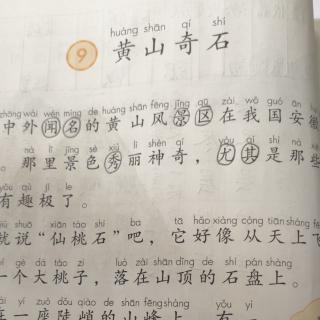 huáng shān qí shí
9 黄山奇石
zhōng wài wén míng de huáng shān fēng jǐng qū zài wǒ guó ān
中外闻名的黄山风景区在我国安徽
nà lǐ jǐng sè xiù lì shén qí yóu qí shì nà
。那里景色秀丽神奇，尤其是那些
yǒu qù jí le
有趣极了。
shuō xiān táo shí ba tā hǎo xiàng cóng tiān shang
就说“仙桃石”吧，它好像从天上飞
gè dà táo zi luò zài shān dǐng de shí pán shàng
一个大桃子，落在山顶的石盘上。
yí zuò dǒu qiào de shān fēng shàng yǒu yì
在一座陡峭的山峰上，有一